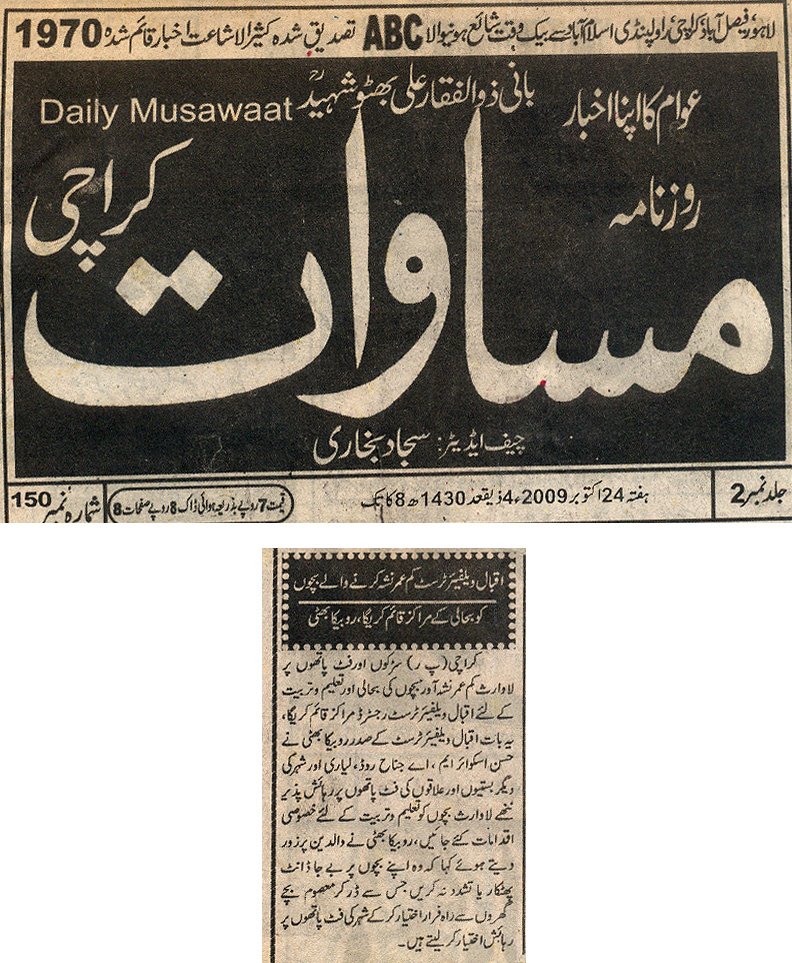 لاہور، فیصل آباد، کراچی، راولپنڈی، اسلام آباد سے بیک وقت شائع ہونیوالا ABC تصدیق شدہ کثیر الاشاعت اخبار قائم شدہ 1970
عوام کا اپنا اخبار
بانی ذوالفقار علی بھٹو شہیدؒ
Daily Musawaat
روزنامہ
مساوات
کراچی
چیف ایڈیٹر: سجاد بخاری
جلد نمبر 2
ہفتہ 24 اکتوبر 2009ء 4 ذیقعد 1430ھ 8 کاتک
قیمت 7 روپے بذریعہ ہوائی ڈاک 8 روپے صفحات 8
شمارہ نمبر 150
اقبال ویلفیئر ٹرسٹ کم عمر نشہ کرنے والے بچوں
کو بحالی کے مراکز قائم کریگا، روبیکا بھٹی
کراچی (پ ر) سڑکوں اور فٹ پاتھوں پر
لاوارث کم عمر نشہ آور بچوں کی بحالی اور تعلیم وتربیت
کے لئے اقبال ویلفیئر ٹرسٹ رجسٹرڈ مراکز قائم کریگا،
یہ بات اقبال ویلفیئر ٹرسٹ کے صدر روبیکا بھٹی نے
حسن اسکوائر ایم، اے جناح روڈ، لیاری اور شہر کی
دیگر بستیوں اور علاقوں کی فٹ پاتھوں پر رہائش پذیر
ننھے لاوارث بچوں کو تعلیم وتربیت کے لئے خصوصی
اقدامات کئے جائیں، روبیکا بھٹی نے والدین پر زور
دیتے ہوئے کہا کہ وہ اپنے بچوں پر بے جا ڈانٹ
پھٹکار یا تشدد نہ کریں جس سے ڈر کر معصوم بچے
گھروں سے راہ فرار اختیار کر کے شہر کی فٹ پاتھوں پر
رہائش اختیار کر لیتے ہیں۔